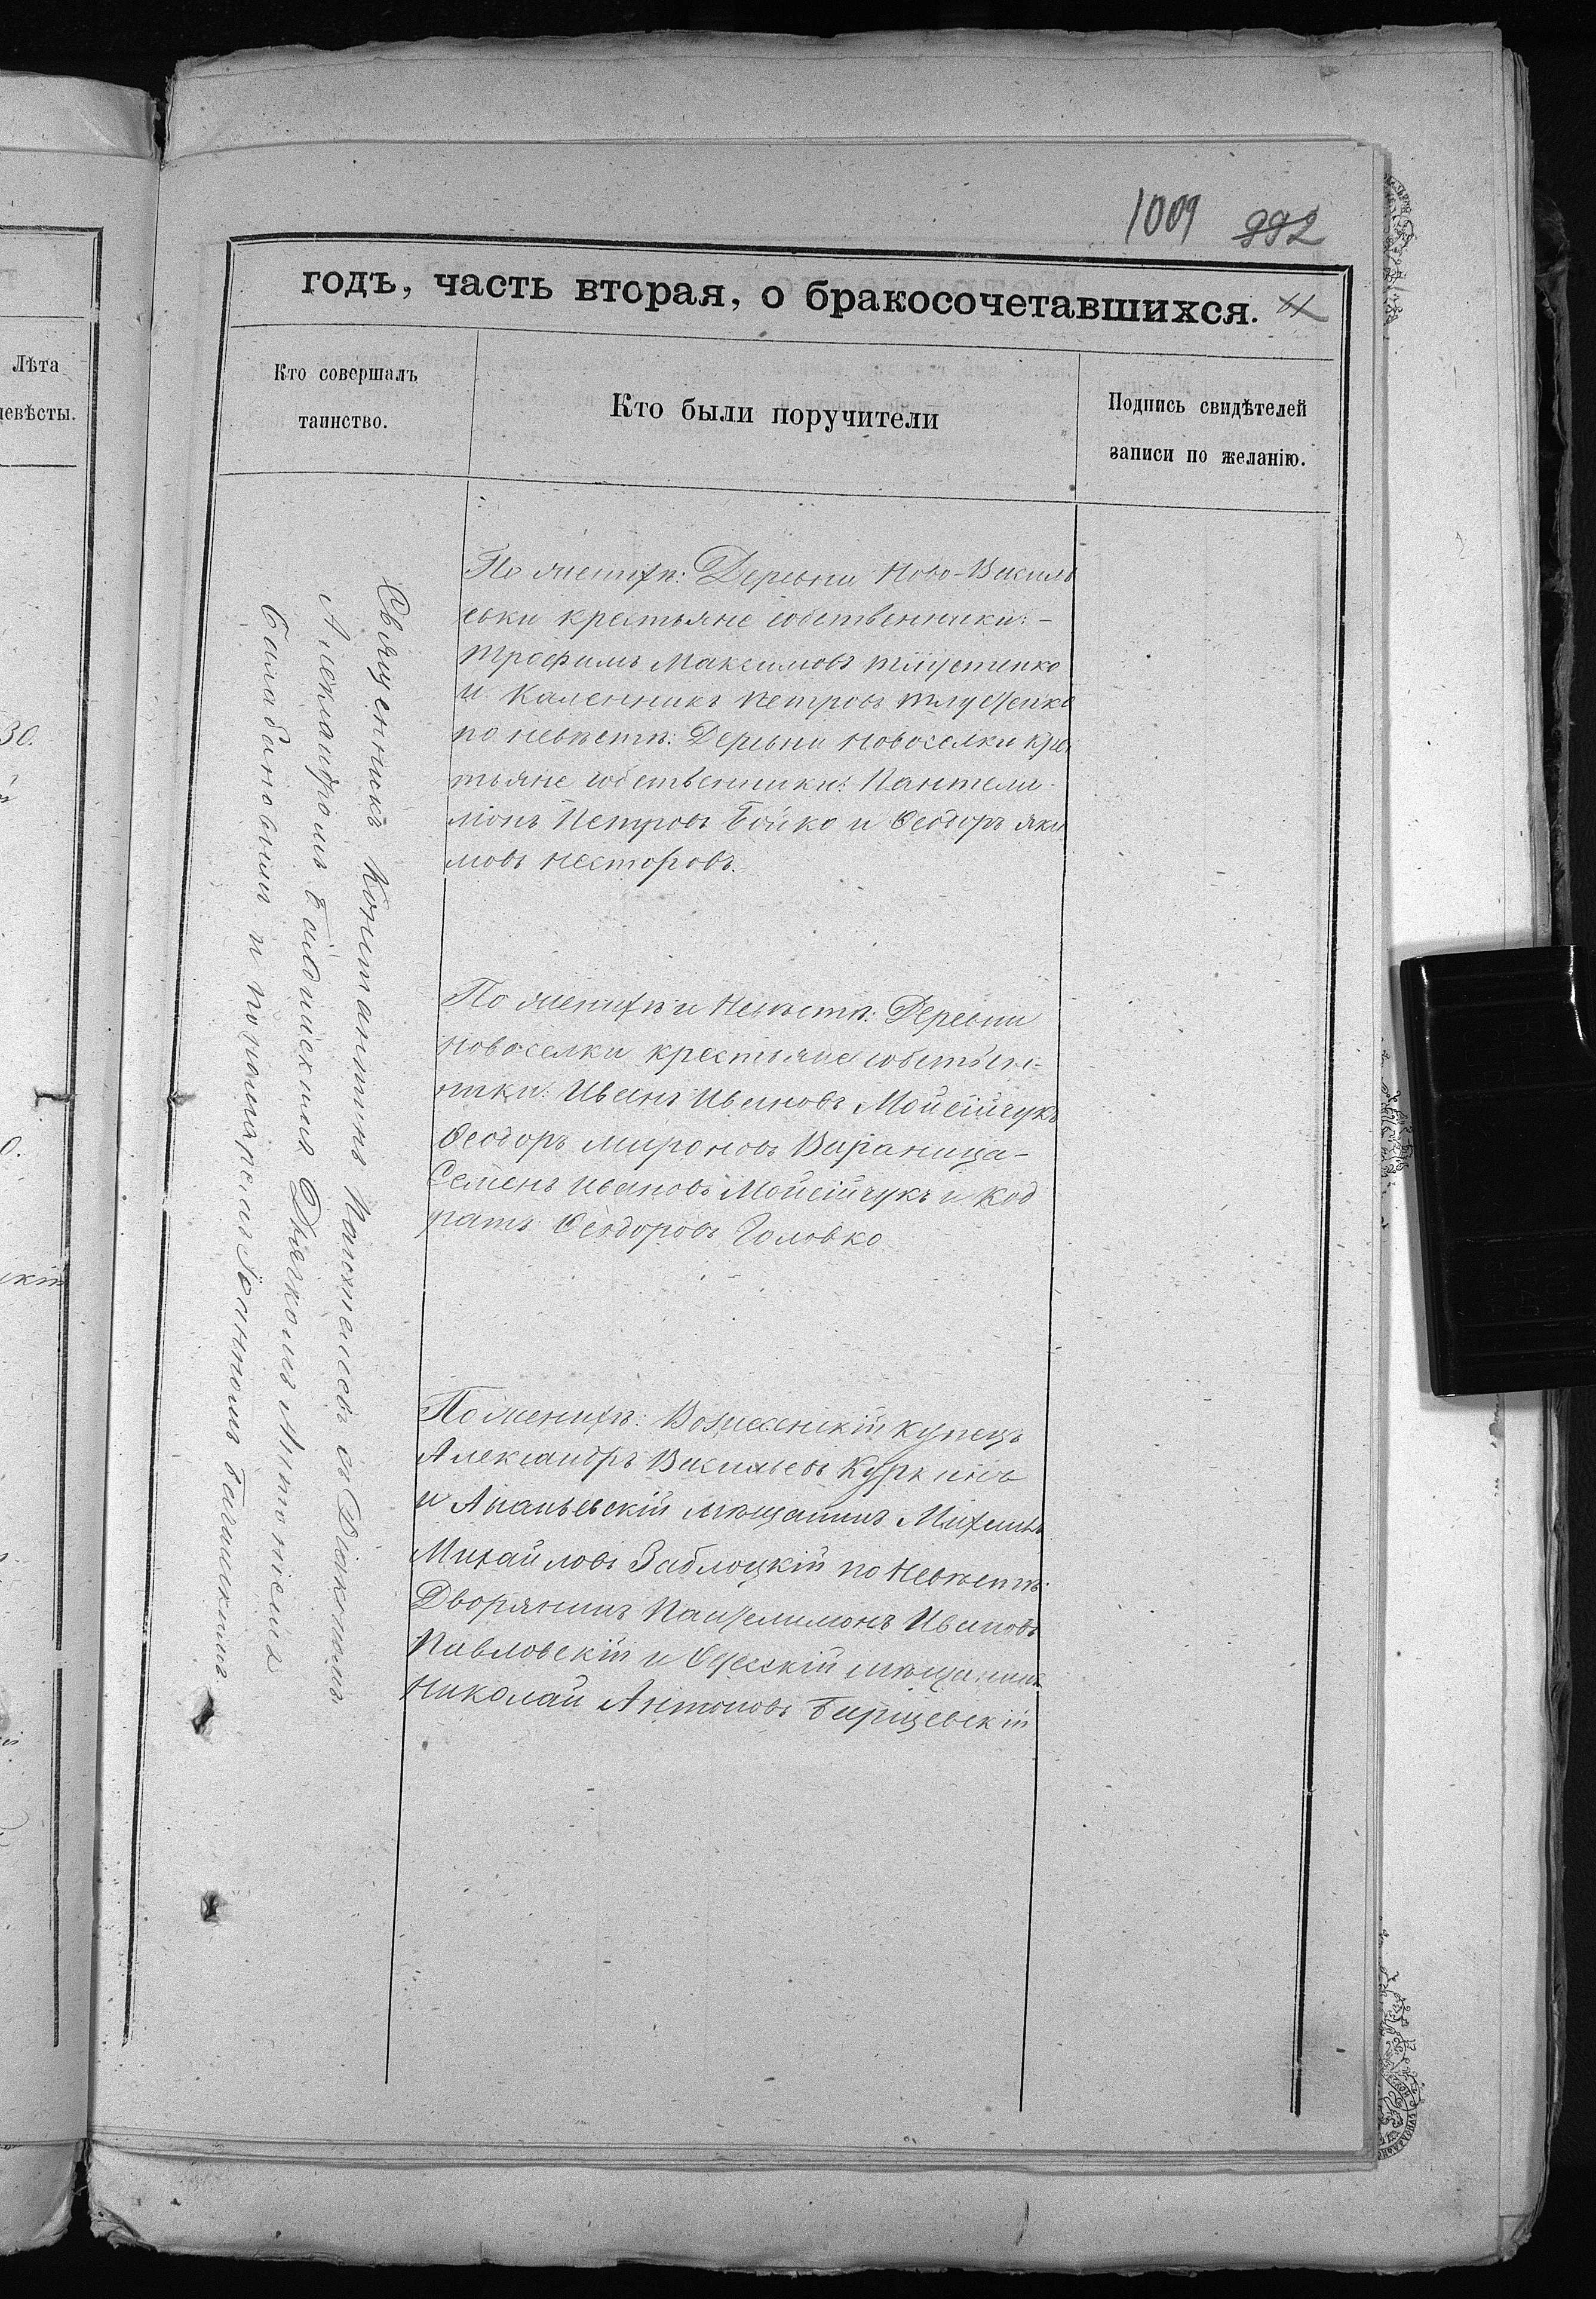 1009 992
годъ, часть вторая, о бракосочетавшихся.
Лѣта
невѣсты.
Кто совершалъ
таинство.
Кто были поручители
Подпись свидѣтелей
записи по желанію.
30.
0.
Священникъ Константинъ Пантелеевъ съ Діакономъ
Александромъ Дьячкомъ Антоніемъ
Балабановымъ и пономаремъ Іоанномъ
По женихѣ: Деревни Ново-Василь
евки крестьяне собственники:-
Трофимъ Максимовъ
и Каленникъ Петровъ
по невѣстѣ: Деревни Новоселки крес
тьяне собственники: Пантели-
монъ Петровъ Бойко и Ѳеодоръ Яки
мовъ Несторовъ.
По женихѣ и Невѣстѣ: Деревни
Новоселки крестьяне собствен-
ники: Иванъ Ивановъ Мойсійчукъ
Ѳеодоръ Мироновъ Вараница-
Семенъ Ивановъ Мойсійчукъ и Код
ратъ Ѳеодоровъ Головко
По женихѣ: Вознесенскій купецъ
Александръ Васильевъ Куркинъ
и Ананьевскій мѣщанинъ Михаилъ
Михайловъ Заблоцкій по Невѣстѣ:
Дворянинъ Пантелимонъ Ивановъ
Павловскій и Одесскій мѣщанинъ
Николай Антоновъ Барщевскій